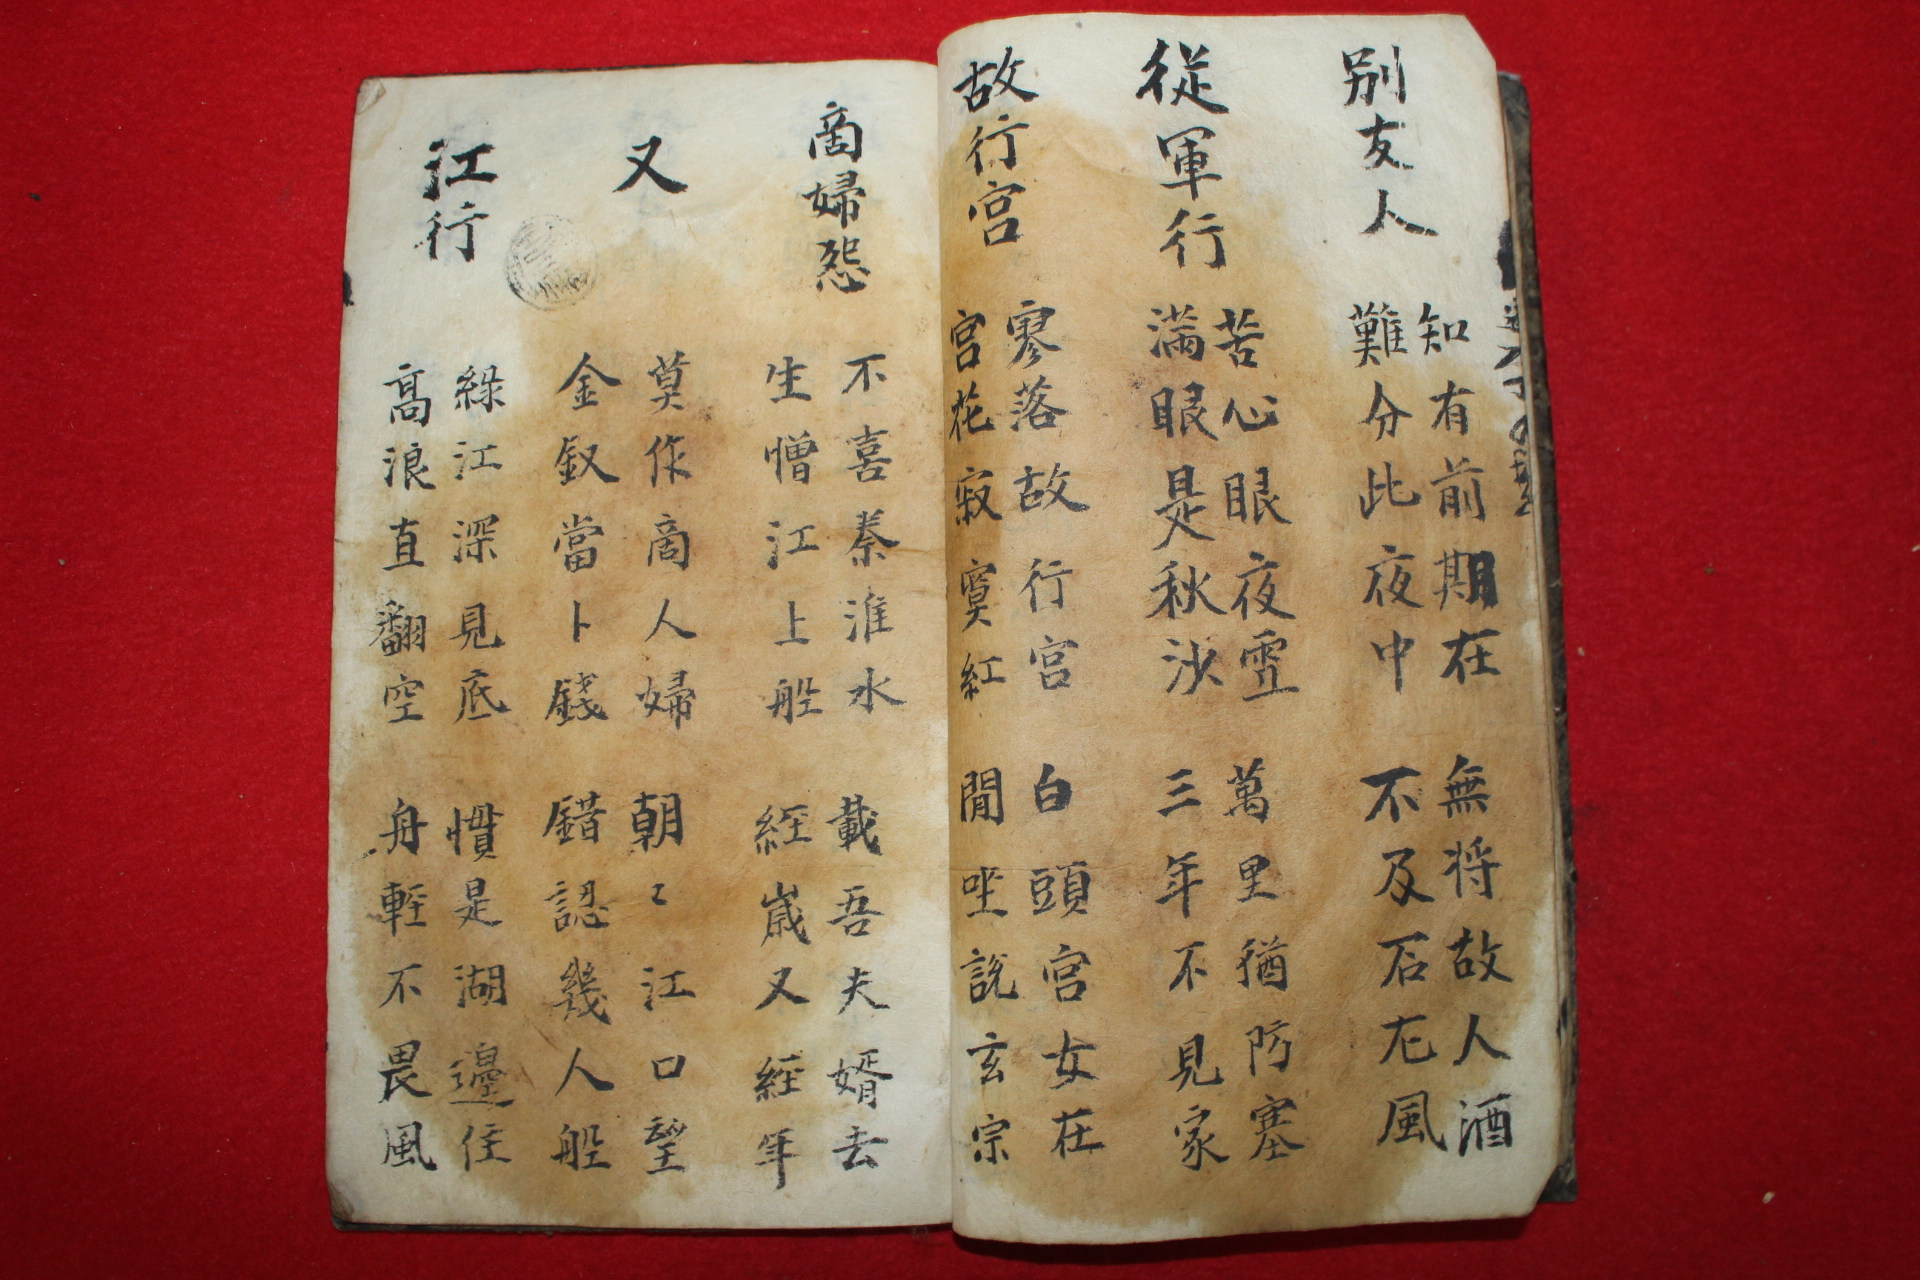 別友人
知有前期在 無将故人酒
難分此夜中 不及石尤風
從軍行
苦心眼夜雪 萬里猶防塞
滿眼是秋沙 三年不見家
故行宮
寥落故行宮 白頭宮女在
宮花寂寞紅 閒坐說玄宗
商婦怨
不喜秦淮水 載吾夫婿去
生憎江上船 經歲又經年
又
莫作商人婦 朝〻江口望
金釵當卜錢 錯認幾人船
江行
綠江深見底 慣是湖邊住
高浪直翻空 舟輕不畏風